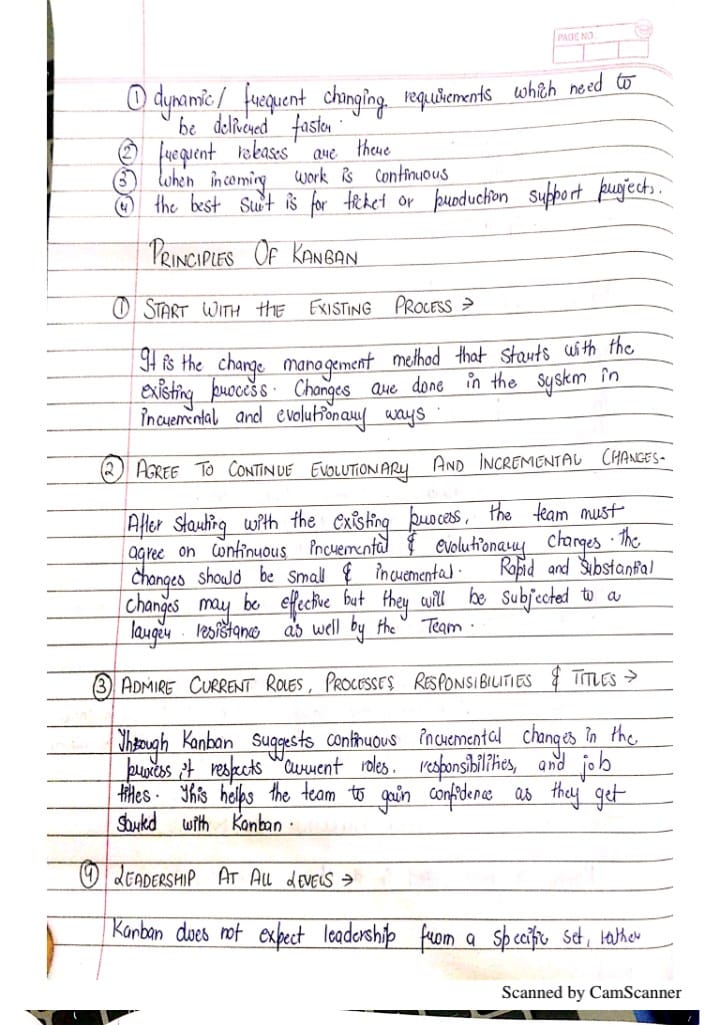 PAGE NO.
① dynamic/ frequent changing requirements which need to
be delivered faster.
② frequent releases are there
③ When incoming work is continuous
④ the best suit is for ticket or production support projects.
PRINCIPLES OF KANBAN
① START WITH tHE EXISTING PROCESS →
It is the change management method that starts with the
existing process. Changes are done in the system in
incremental and evolutionary ways.
② AGREE TO CONTINUE EVOLUTIONARY AND INCREMENTAL CHANGES-
After starting with the existing process, the team must
agree on continuous incremental & evolutionary changes. the
changes should be small & incremental. Rapid and Substantial
changes may be effective but they will be subjected to a
larger resistance as well by the Team.
③ ADMIRE CURRENT ROLES, PROCESSES RESPONSIBILITIES & TITLES →
Through Kanban suggests continuous incremental changes in the
process it respects current roles, responsibilities, and job
titles. This helps the team to gain confidence as they get
started with Kanban.
④ LEADERSHIP AT ALL LEVELS →
Kanban does not expect leadership from a specific set, rather
Scanned by CamScanner